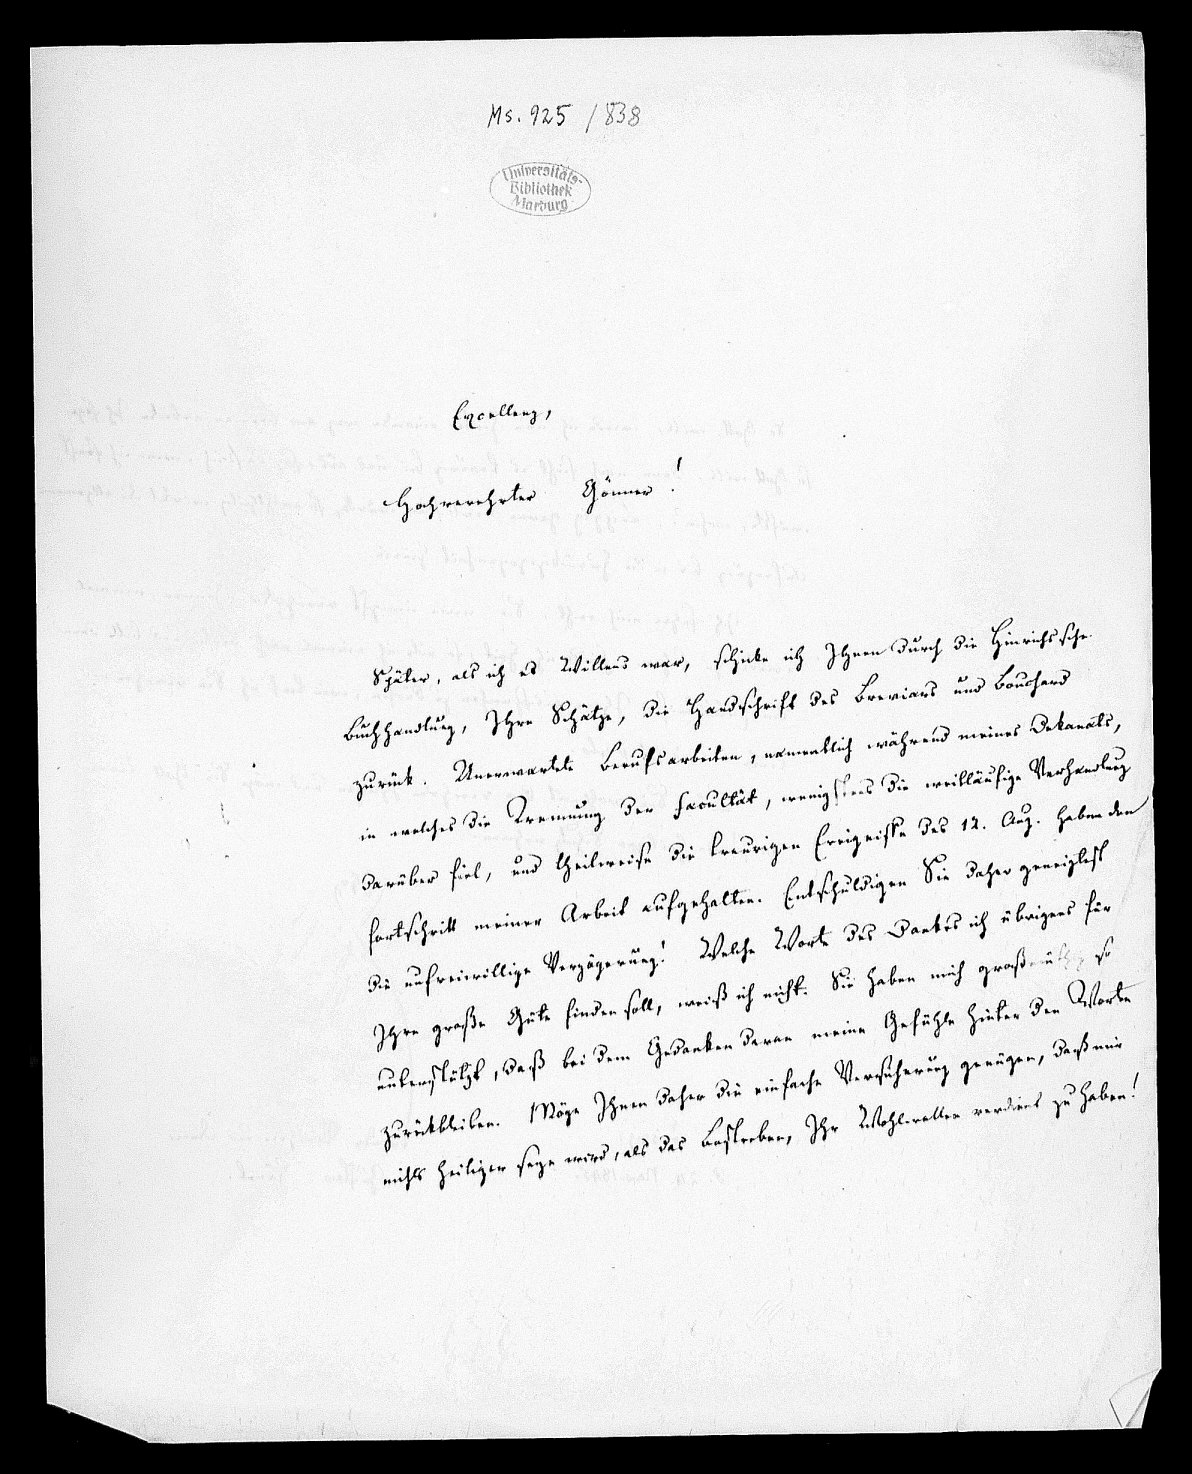 Ms. 925 / 838
Universitäts-
Bibliothek
Marburg
Excellenz,
Hochverehrter Gönner!
Später, als ich es Willens war, schicke ich Ihnen durch die Hinrichssche
Buchhandlung, Ihre Schätze, die Handschrift des Breviars und Bouchard
zurück. Unerwartete Berufsarbeiten, namentlich während meines Dekanats,
in welches die Trennung der Facultät, wenigstens die weitläufige Verhandlung
darüber fiel, und theilweise die traurigen Ereignisse des 12. Aug. haben den
Fortschritt meiner Arbeit aufgehalten. Entschuldigen Sie daher geneigtest
die unfreiwillige Verzögerung! Welche Worte des Dankes ich übrigens für
Ihre große Güte finden soll, weiß ich nicht. Sie haben mich großmüthig so
unterstützt, daß bei dem Gedanken daran meine Gefühle hinter den Worten
zurückbleiben. Möge Ihnen daher die einfache Versicherung genügen, daß mir
nichts heiliger seyn wird, als das Bestreben, Ihr Wohlwollen verdient zu haben!